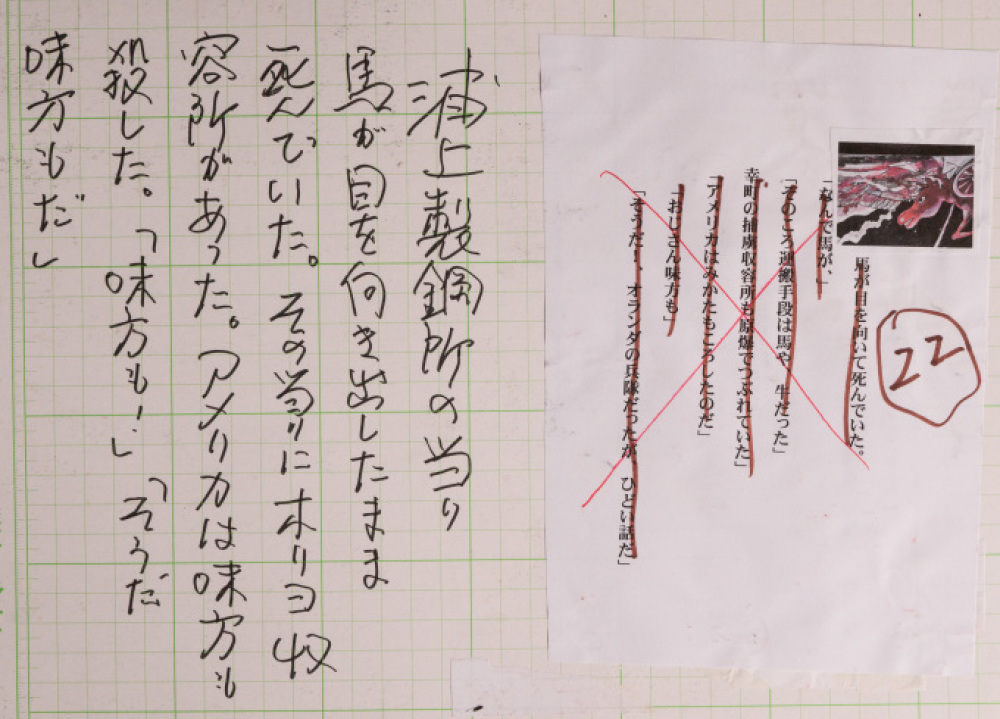 馬が目を向いて死んでいた。
「なんで馬が、」
「そのころ運搬手段は馬や、牛だった」
幸町の捕虜収容所も原爆でつぶれていた」
「アメリカはみかたもころしたのだ」
「おじさん味方も」
「そうだ！、オランダの兵隊だったが、ひどい話だ」
22
浦上製鋼所の当り
馬が目を向き出したまま
死んでいた。その当りにホリヨ収
容所があった。アメリカは味方も
殺した。「味方も!」「そうだ
味方もだ」